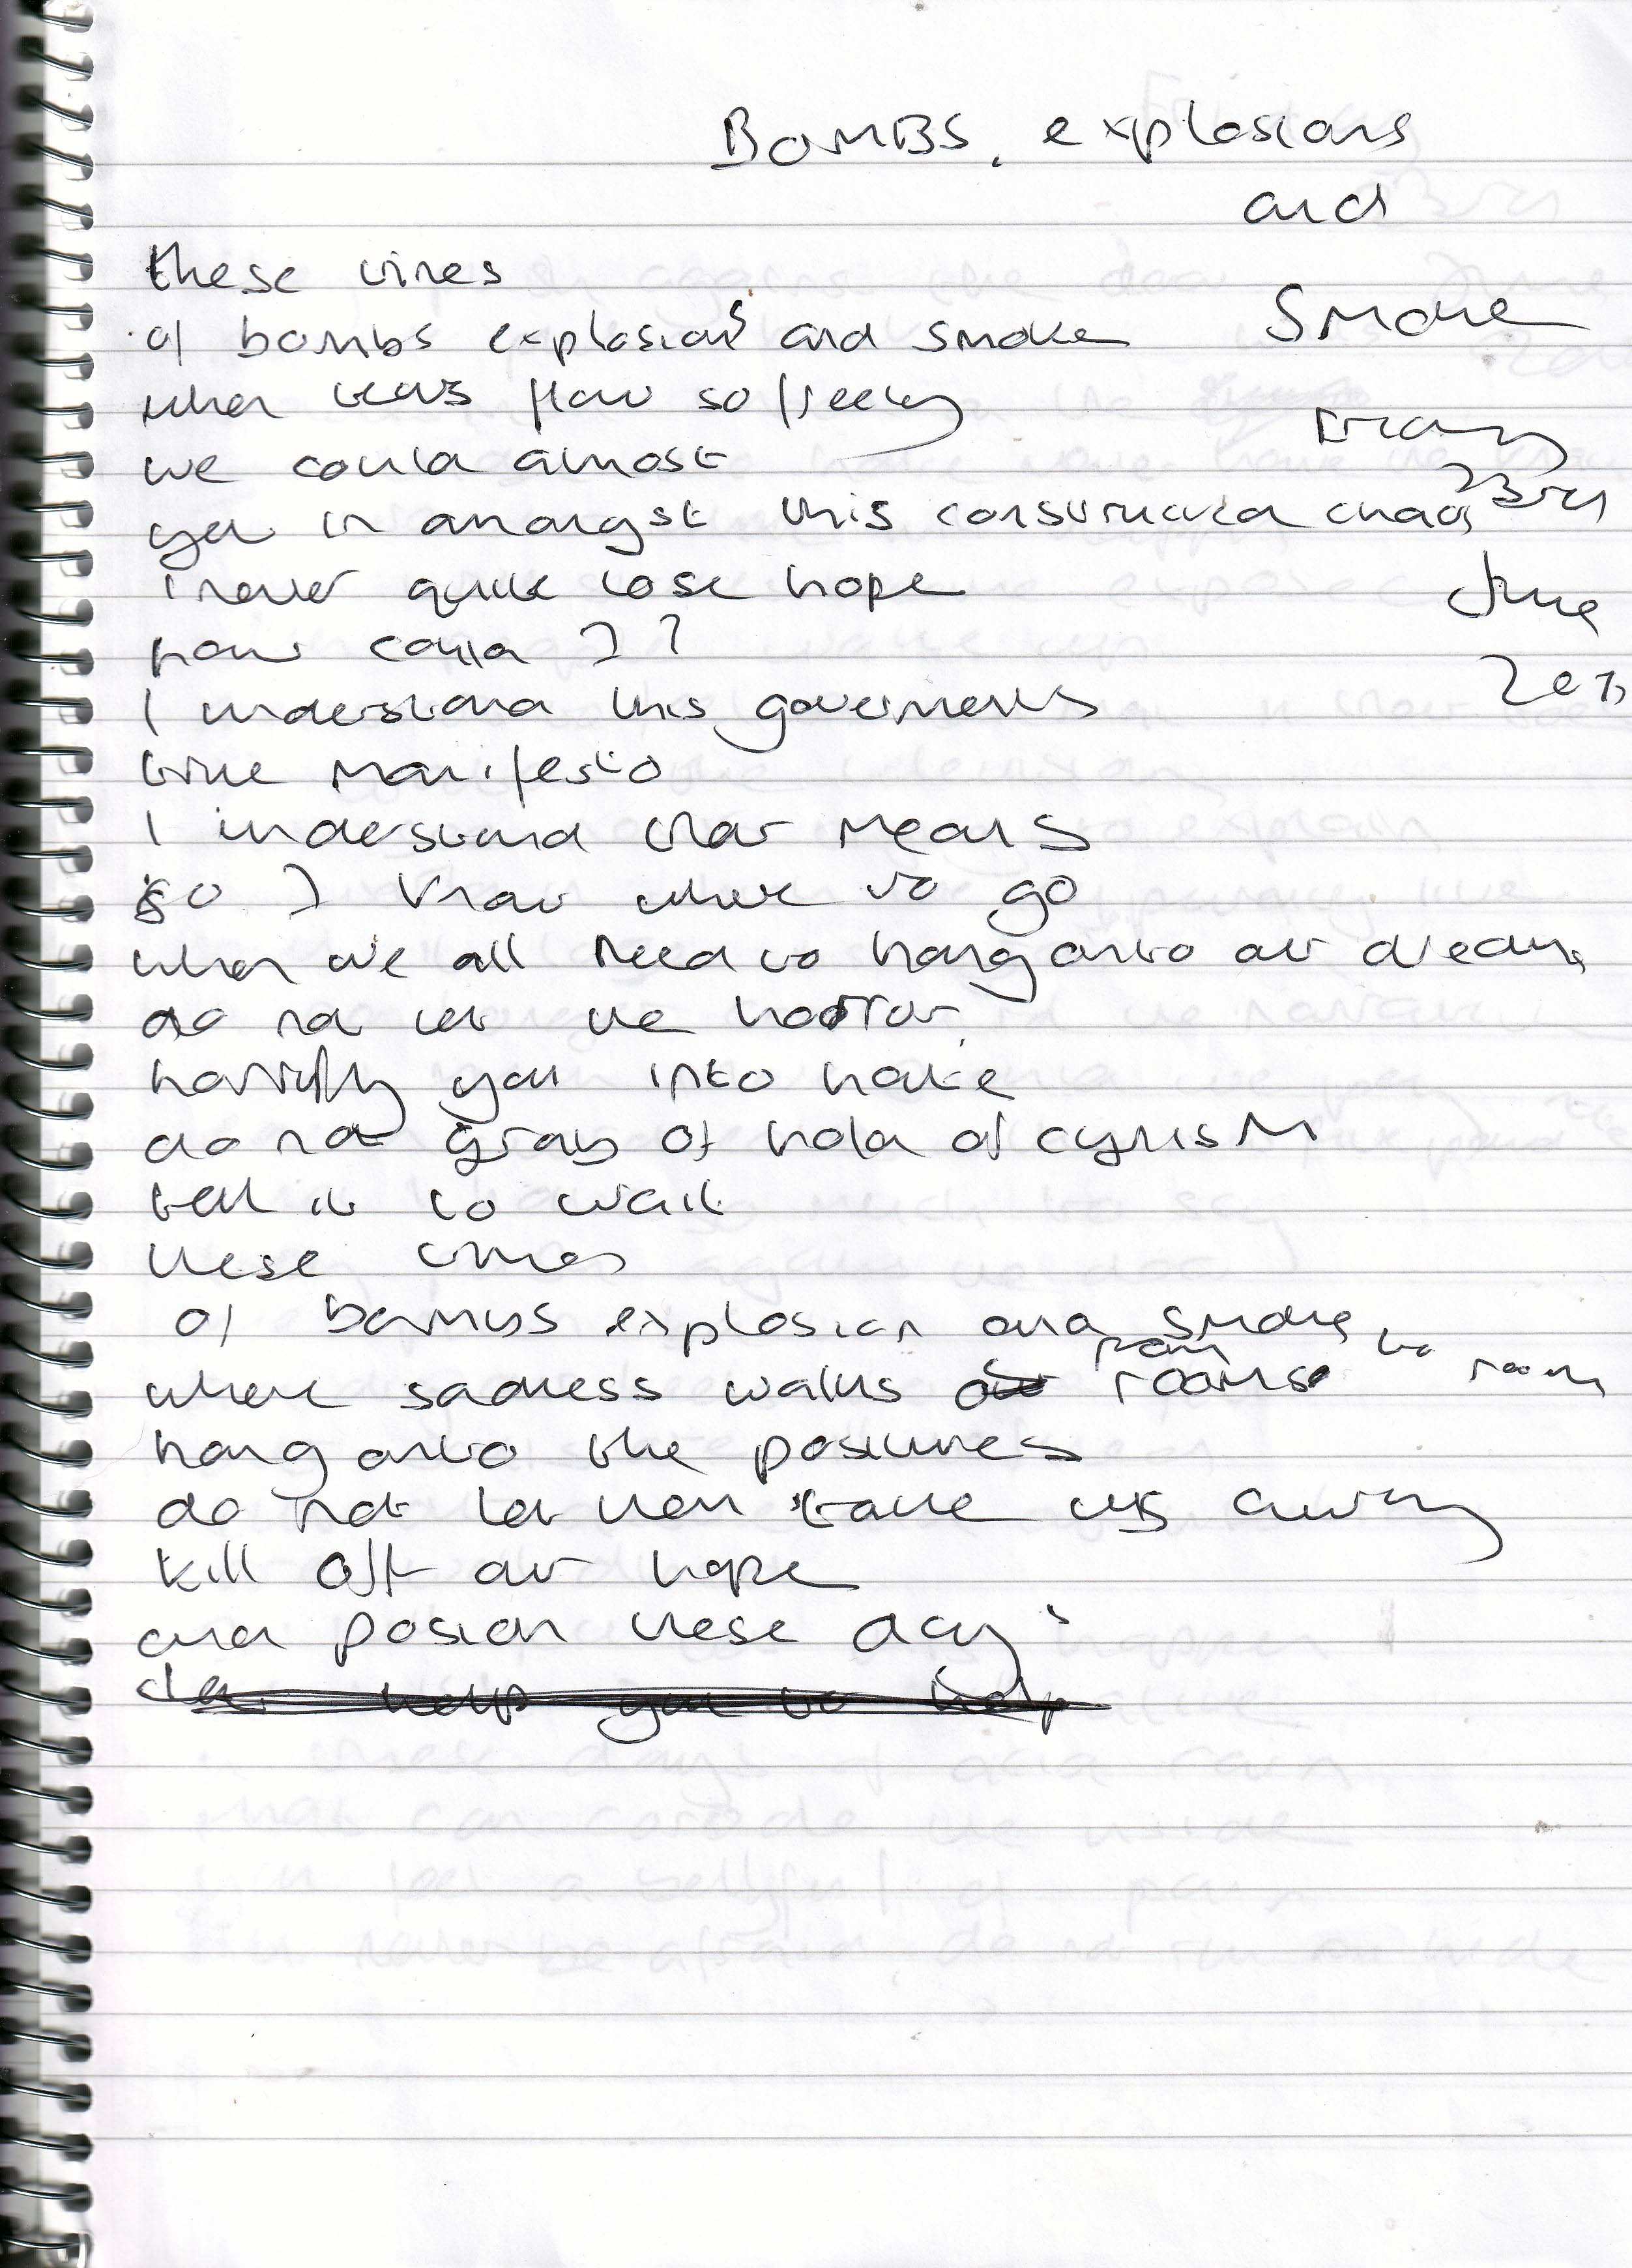 BOMBS, explosions
and
Smoke
Friday
23rd
June
2017
these times
of bombs explosions and smoke
when tears flow so freely
we could almost
yet in amongst this constructed chaos
I never quite lose hope
how could I?
I understand this governments
true manifesto
I understand that means
so I know where to go
when we all need to hang onto our dreams
do not let the horror
horrify you into hate
do not grab of hold of cynism
tell it to wait
these times
of bombs explosion and smoke
where sadness walks from room to room
hang onto the positives
do not let them take us away
kill off our hope
and posion these days
help you to help